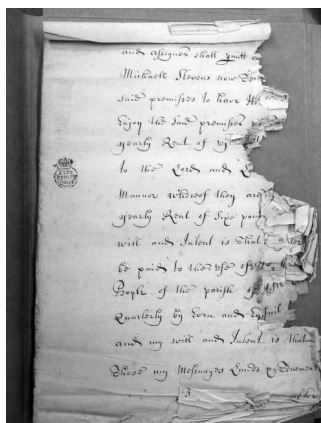 and assignes shall pmitt an
Michaell Stevens now Ten
said premisses to have
Enjoy the said premisses
yearly Rent of
to the Lord and
Mannor whereof they are
yearly Rent of Six poun
will and Intent is That after
be paid to the use of
People of the parish of
Quarterly by Even and Equall
and my will and Intent is that
Those my Messuages Lands Tenements
3